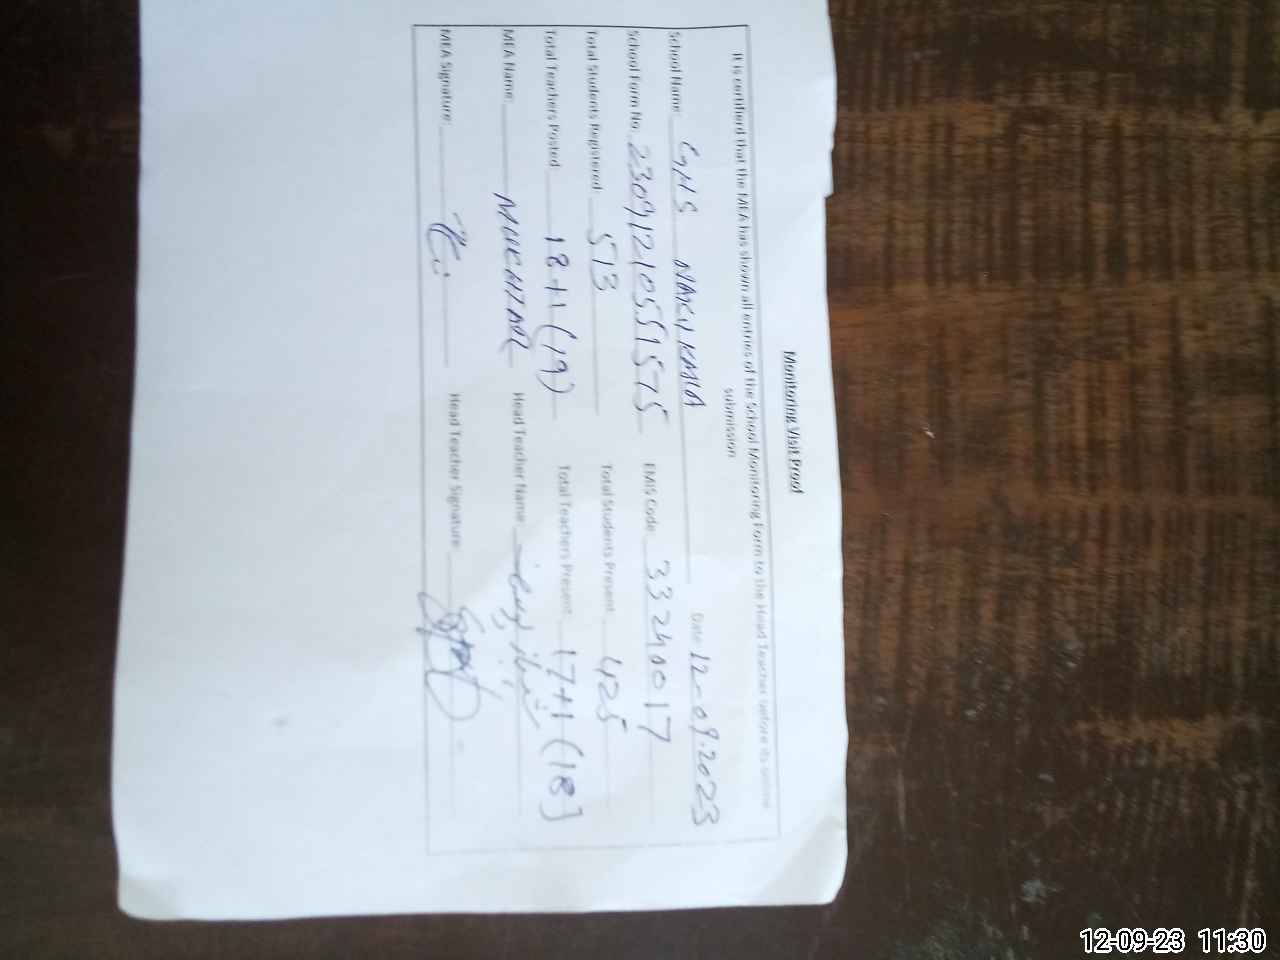 Monitoring Visit Proof
It is certified that the MEA has shown all entries of the School Monitoring Form to the Head Teacher before its online
submission
School Name: GHS Date: 12-09-2023
School Form No. 23091210551575 EMIS Code: 33240017
Total Students Registered: 513 Total Students Present: 425
Total Teachers Posted: 18+1 (19) Total Teachers Present: 17+1 (18)
MEA Name: Head Teacher Name:
MEA Signature: Head Teacher Signature:
12-09-23 11:30